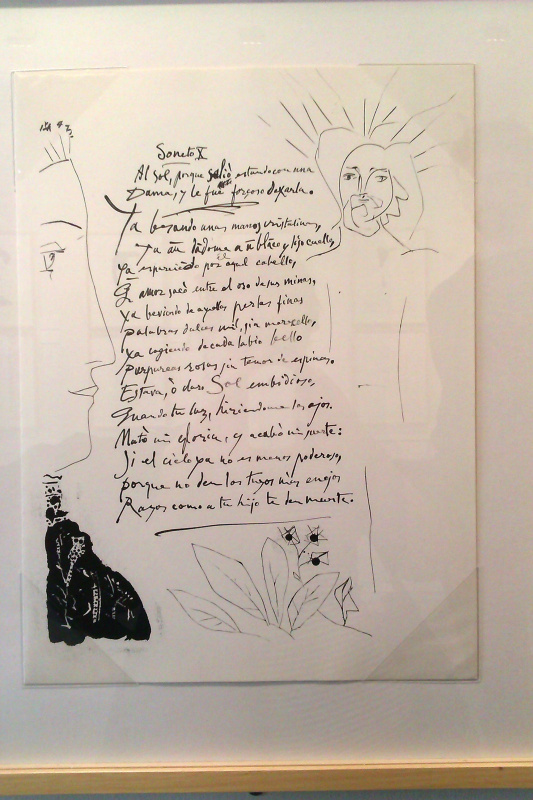 Soneto X
Al Sol, porque salió estando con una
Dama, y le fue forçoso dexarla.
Ya besando unas manos cristalinas,
ya
Ya esparciendo por el aquel cabello,
Q. amor sacó entre el oro de sus minas,
Ya beviendo de aquellas perlas finas
palabras dulces mil, sin merecello,
Ya cogiendo de cada labio bello
purpureas rosas sin temor de espinas.
Estava, ò claro Sol embidioso,
Quando tu luz, hiriendome los ojos.
Matò mi gloria, y acabò mi suerte:
Si el cielo ya no es menos poderoso,
porque no den los tuyos mas enojos
Rayos como a tu hijo te den muerte.